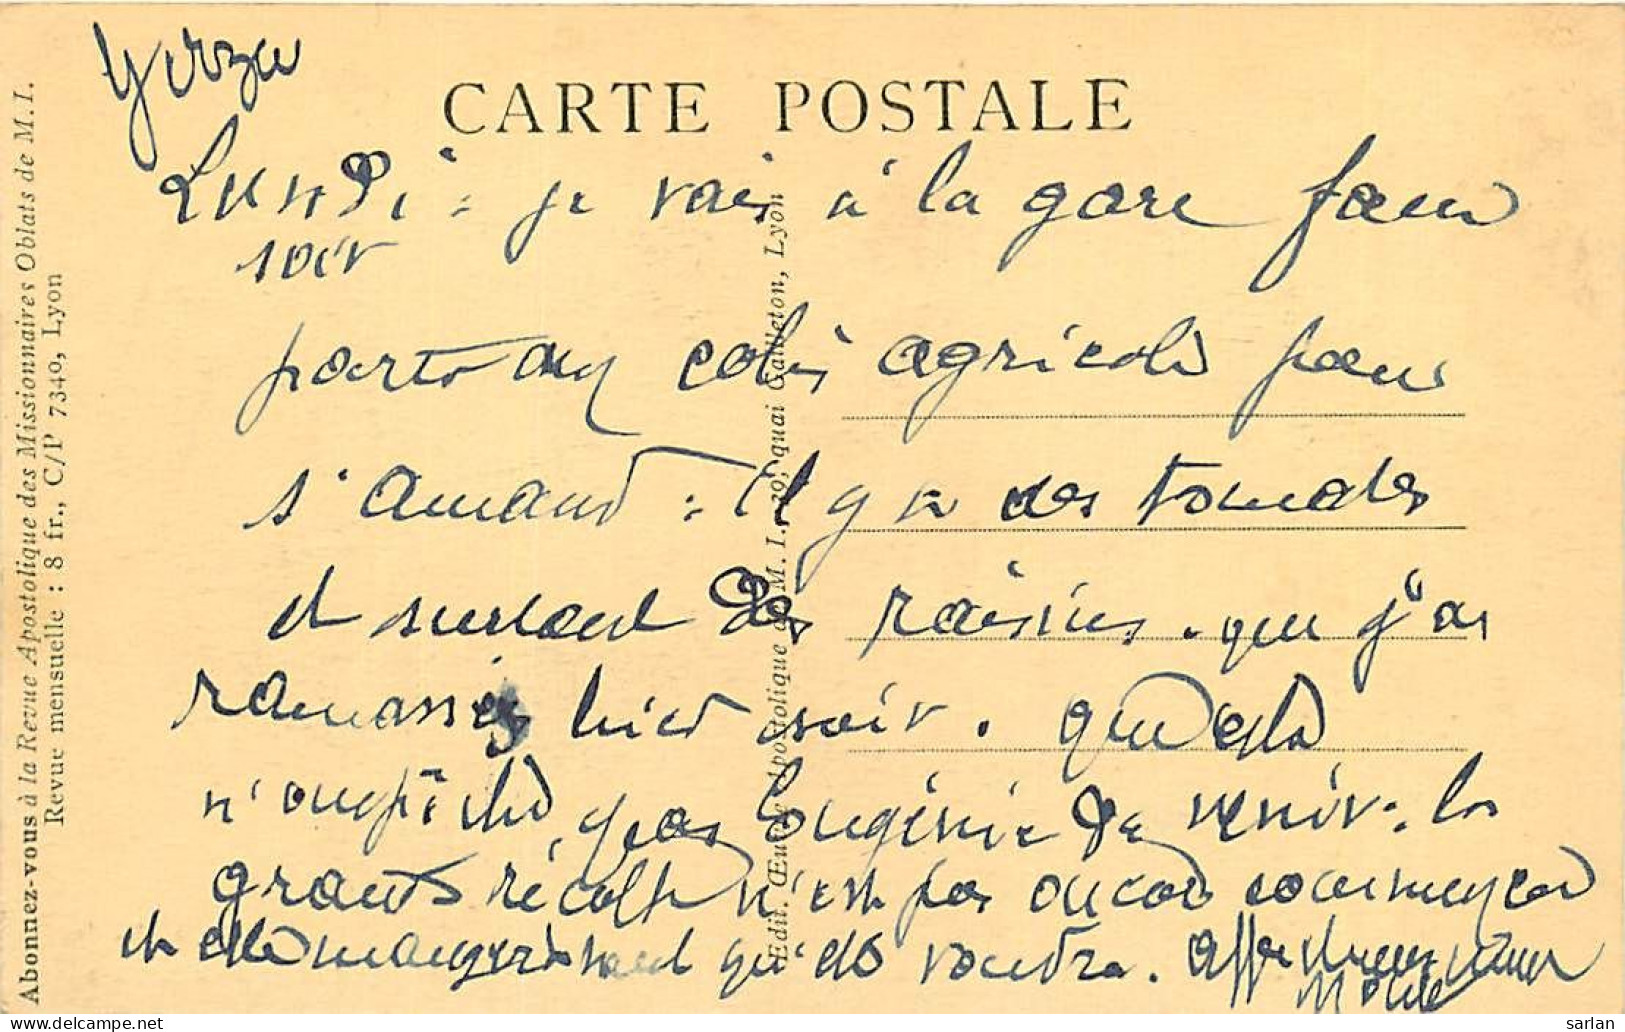 CARTE POSTALE
Lundi : je vais à la gare
soir
colis agricole pour
S'Amand : il y a des tomates
et surtout des raisins. que j'ai
ramassés hier soir. que cela
n'empêche pas Eugénie de venir. la
grande récolte n'est pas encore
et elle mangera tant qu'elle voudra.
Abonnez-vous à la Revue Apostolique des Missionnaires Oblats de M. I.
Revue mensuelle : 8 fr., C/P 7349, Lyon
Edit. Œuvre Apostolique de M. I., 39, quai Gailleton, Lyon
sarlan